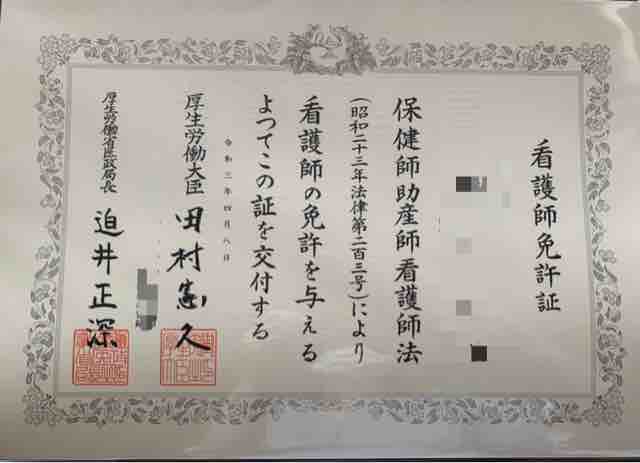 看護師免許証
保健師助産師看護師法
(昭和二十三年法律第二百三号)により
看護師の免許を与える
よつてこの証を交付する
令和三年四月八日
厚生労働大臣 田村憲久
厚生労働省医政局長 迫井正深